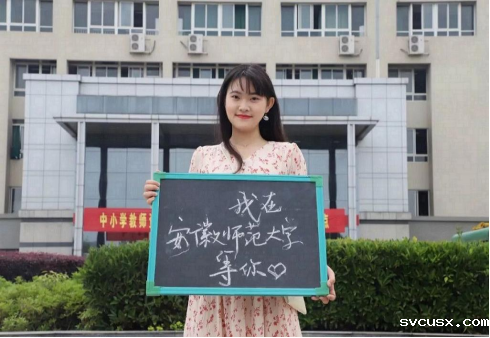 中小学教师
我在
安徽师范大学
等你♡
svcusx.com